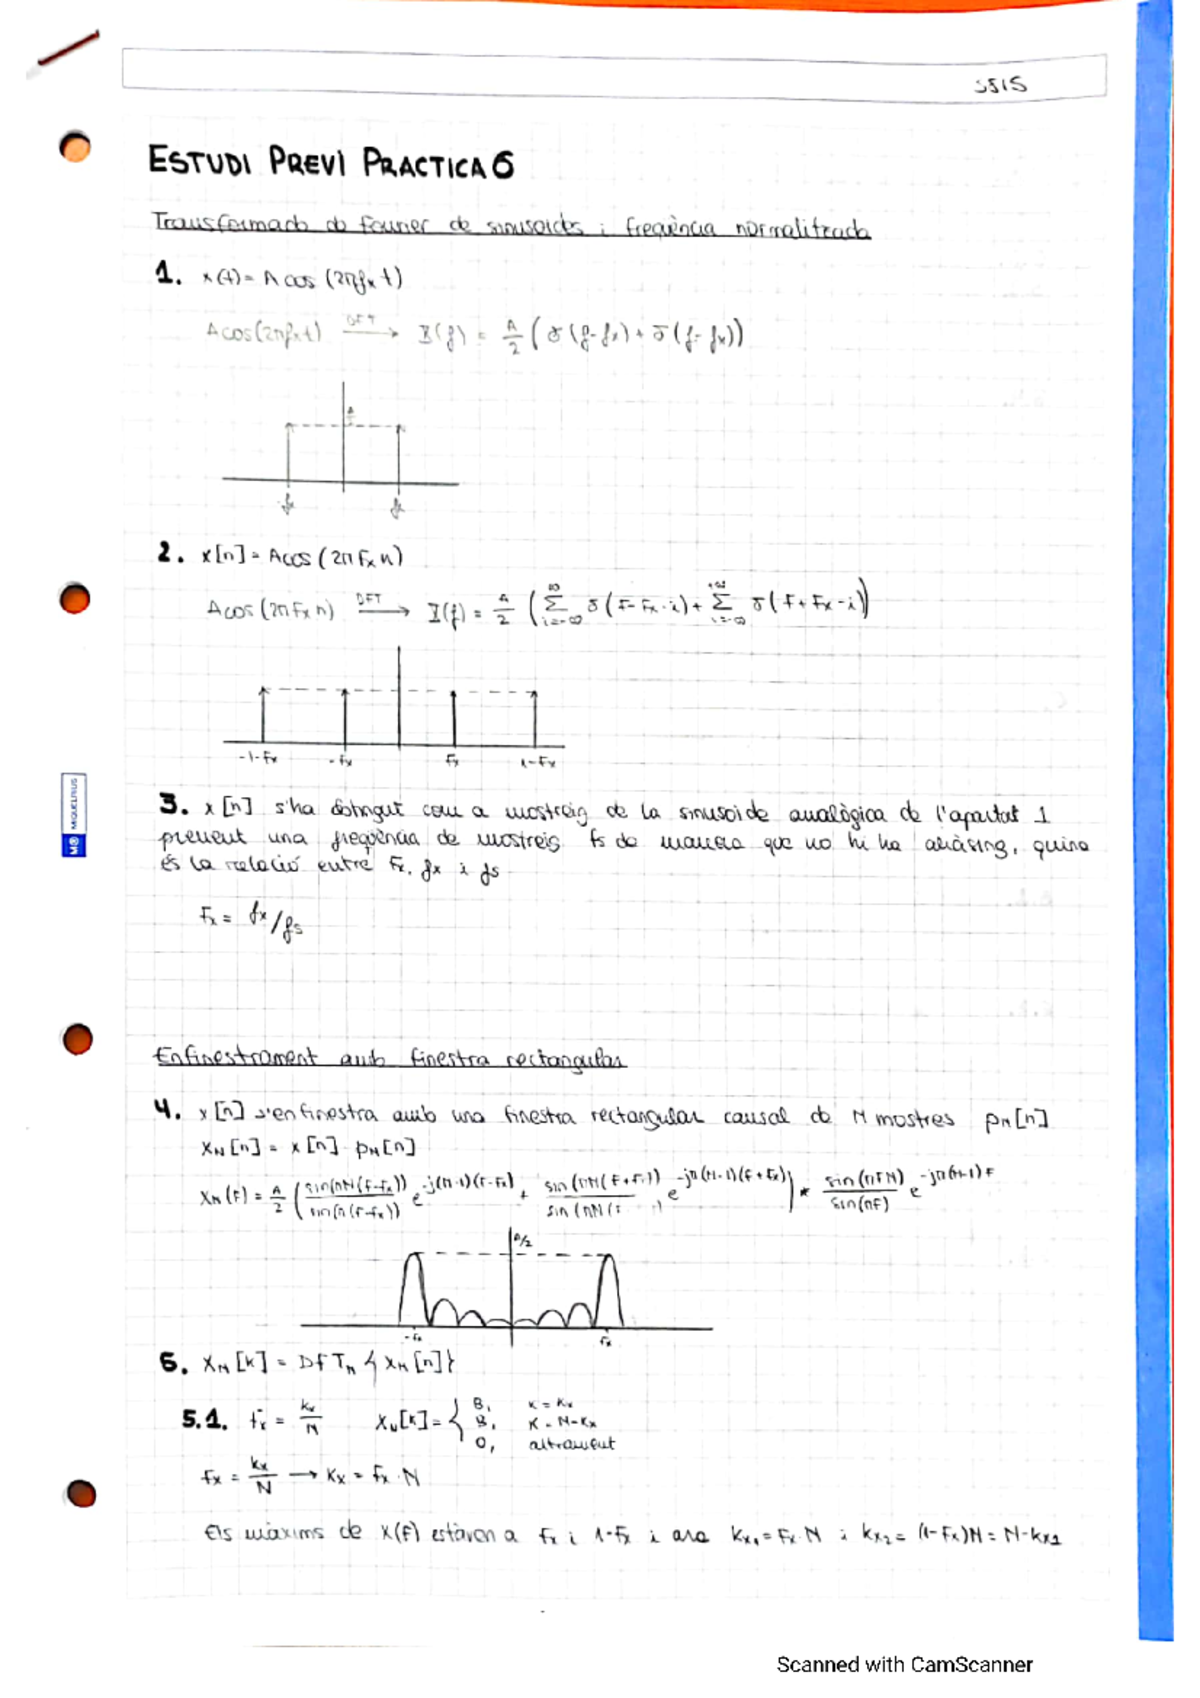 SSIS
ESTUDI PREVI PRACTICA 6
Transformada de Fourier de sinusoides i freqüència normalitzada
1. x(t) = A cos (2πfx t)
A cos(2πfx t) DFT → X(f) = A/2 (δ(f-fx) + δ(f-fx))
A/2
-fx fx
2. x[n] = A cos (2π Fx n)
A cos (2π Fx n) DFT → X(f) = A/2 (∑ i=-∞ ∞ δ(F-Fx-i) + ∑ i=-∞ +∞ δ(F+Fx-i))
-1-Fx -Fx Fx 1-Fx
3. x[n] s'ha obtingut com a mostreig de la sinusoide analògica de l'apartat 1
prenent una freqüència de mostreig fs de manera que no hi ha aliàsing, quina
és la relació entre Fx, fx i fs
Fx = fx/fs
MIQUELRIUS
Enfinestrament amb finestra rectangular
4. x[n] s'enfinestra amb una finestra rectangular causal de N mostres pN[n]
XN[n] = x[n] · pN[n]
XN(F) = A/2 ( sin(πN(F-Fx)) / sin(π(F-Fx)) e^-j(N-1)(F-Fx) + sin(πN(F+Fx)) / sin(πN(F e^-jπ(N-1)(F+Fx) ) * sin(πFN) / sin(πF) e^-jπ(N-1)F
A/2
-Fx Fx
5. XN[k] = DFTN {XN[n]}
5.1. Fx = kx/N XN[k] = { B, k = kx
B, k = N-kx
0, altrament
Fx = kx/N → kx = Fx · N
Els màxims de X(F) estàven a Fx i 1-Fx i ara kx1 = Fx · N i kx2 = (1-Fx)N = N-kx1
Scanned with CamScanner